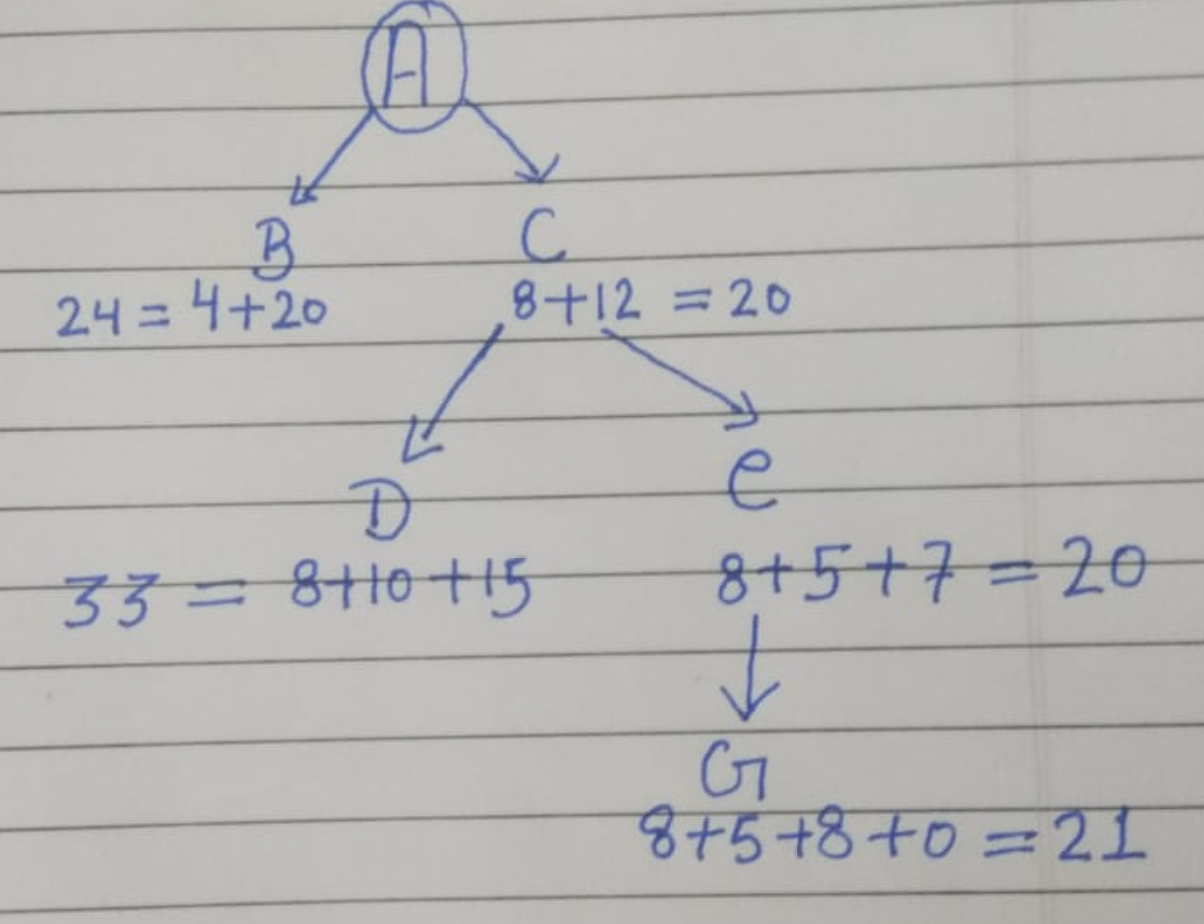 A
B C
24 = 4+20 8+12 = 20
D e
33 = 8+10+15 8+5+7 = 20
G
8+5+8+0 = 21